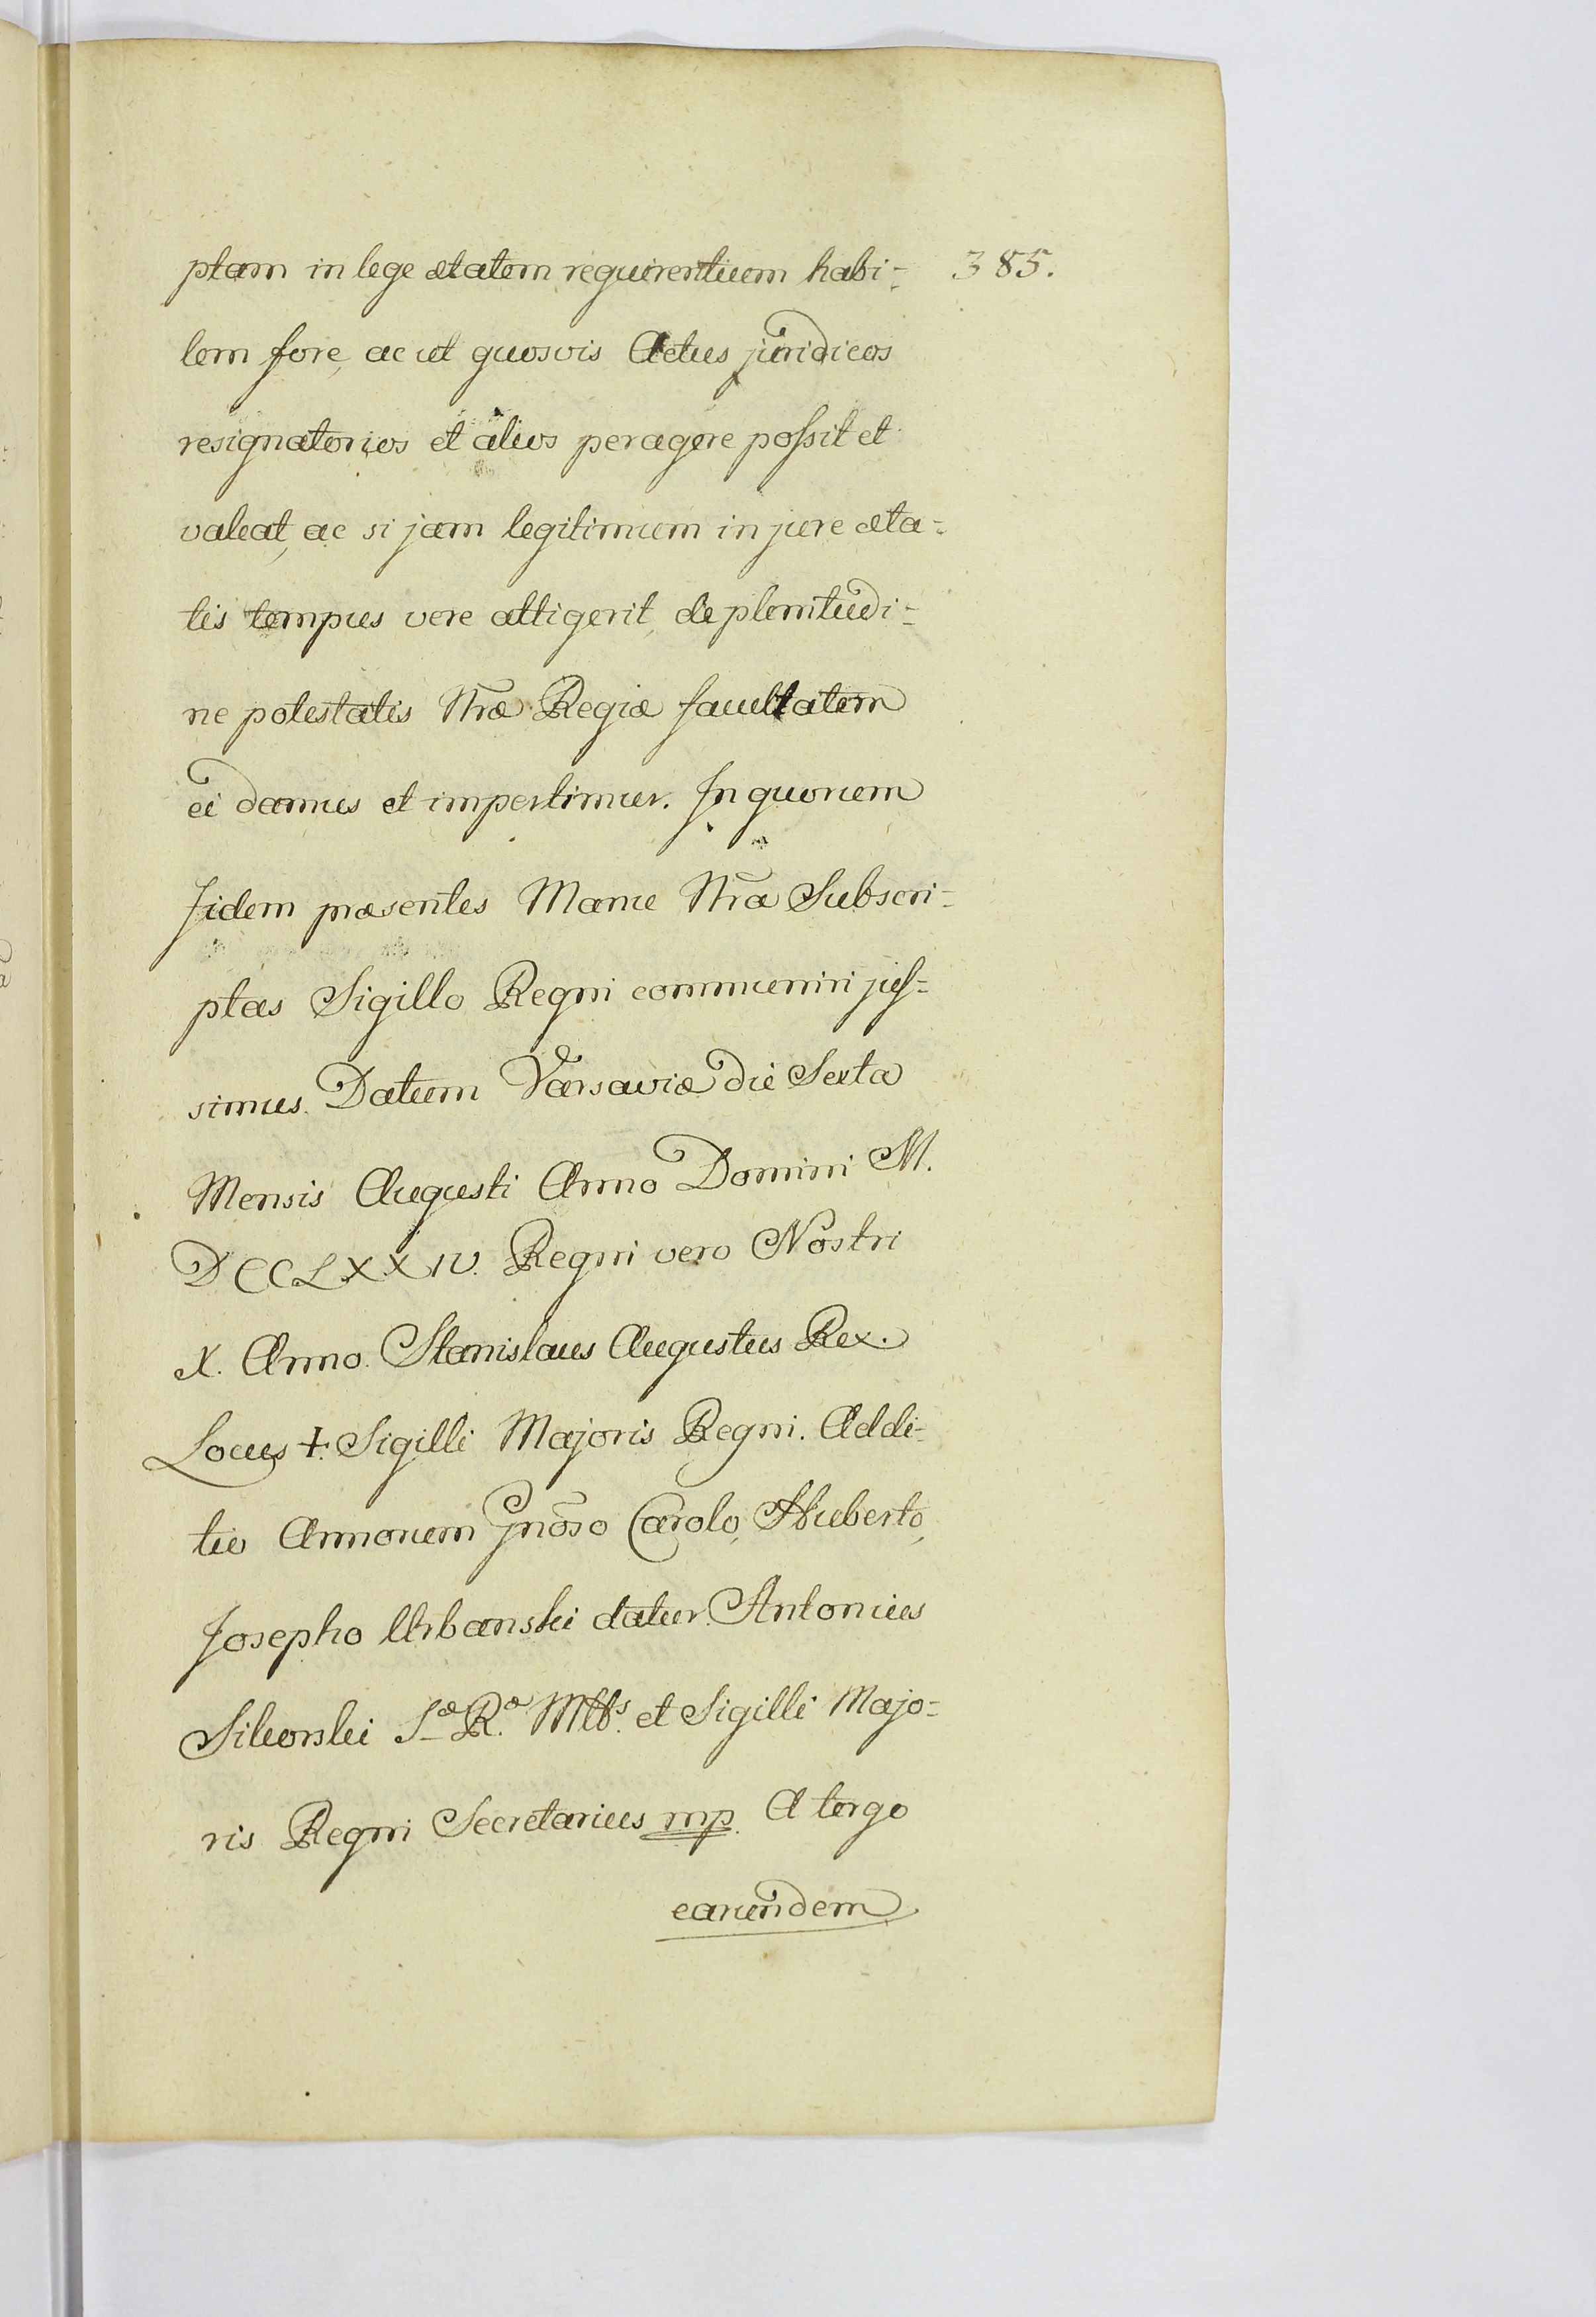 ptam in lege ætatem requirentium habi-
385.
lem fore, ac ut quosvis Actus juridicos
resignatorios et alios peragere poſsit et
valeat, ac si jam legitimum in jure æta-
tis tempus vere attigerit, de plenitudi-
ne potestatis Nrӕ Regiæ facultatem
ei damus et impertimur. In quorum
fidem præsentes Manu Nra Subscri-
ptas Sigillo Regni communiri juſ-
simus. Datum Varsaviæ die Sexta
Mensis Augusti Anno Domini M.
DCCLXXIV. Regni vero Nostri
X. Anno. Stanislaus Augustus Rex.
Locus +. Sigilli Majoris Regni. Addi-
tio Annorum Gnoso Carolo, Huberto,
Josepho Urbanski datur. Antonius
Sikorski Sæ Ræ Mttis et Sigilli Majo-
ris Regni Secretarius mp. A tergo
earundem